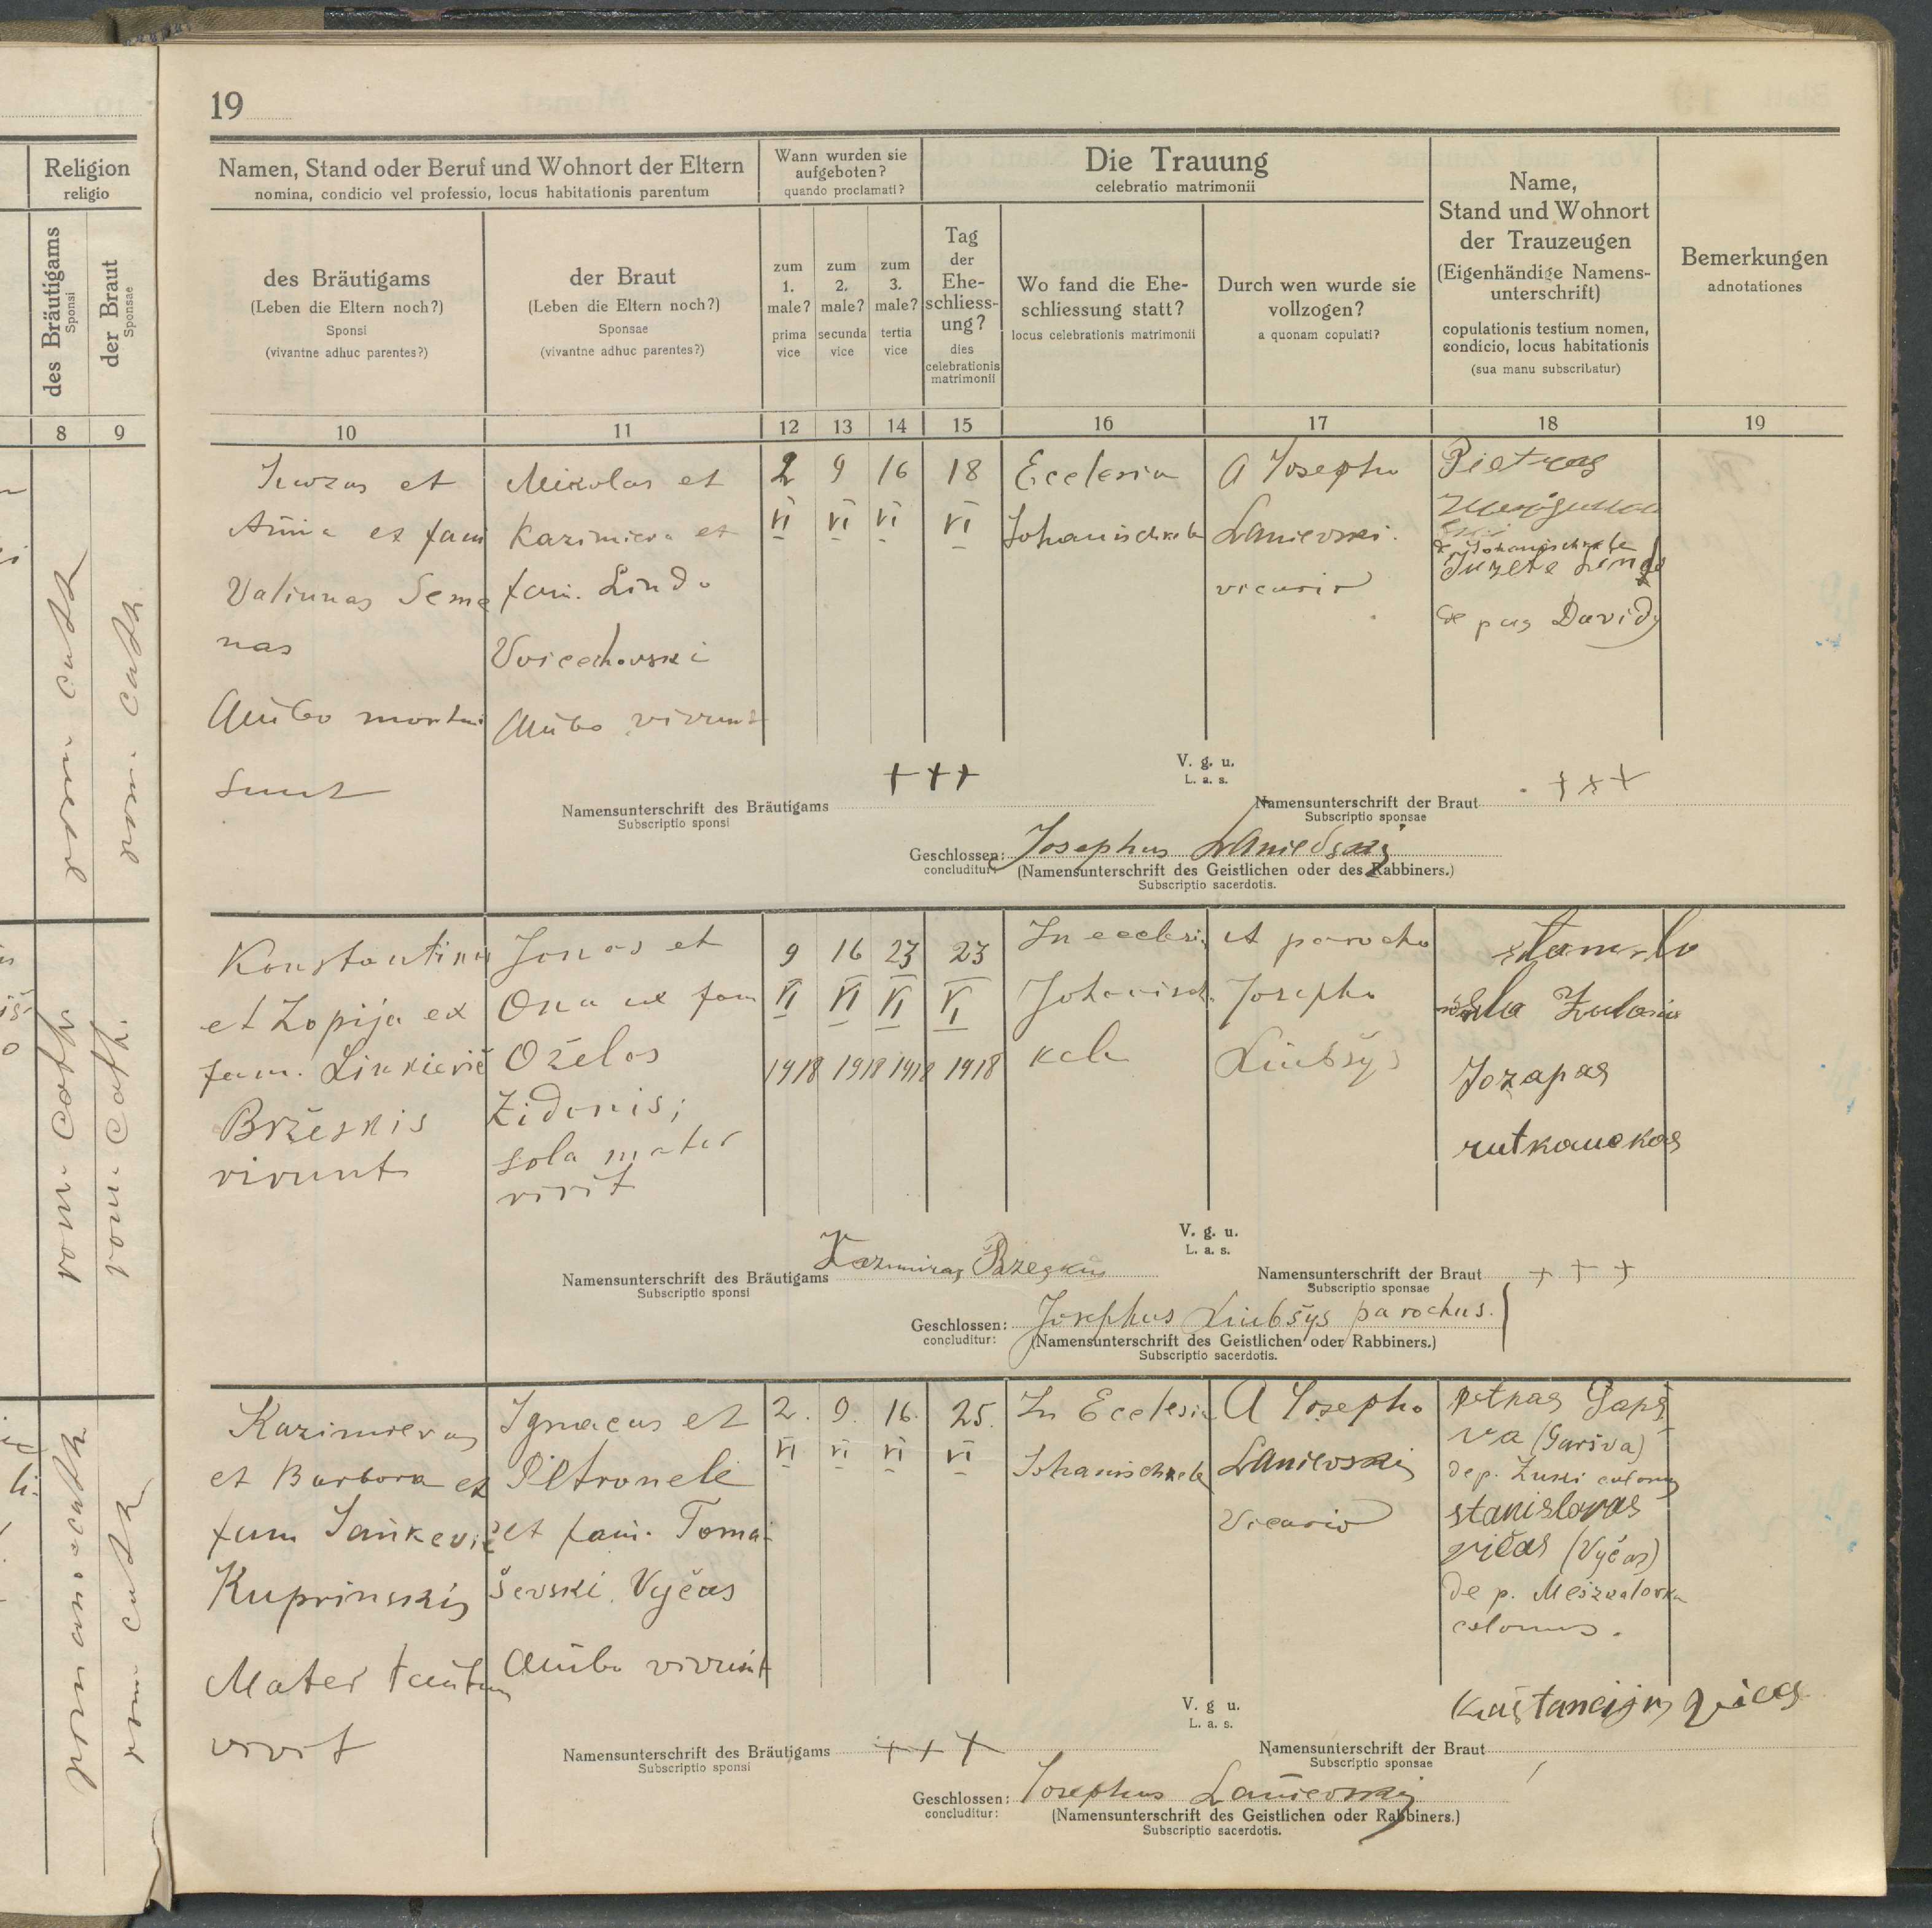 19
Religion
religio
des Bräutigams
Sponsi
der Braut
Sponsae
8
9
rom. cath.
rom. cath.
rom. cath.
rom. cath.
rom. cath.
Namen, Stand oder Beruf und Wohnort der Eltern
nomina, condicio vel professio, locus habitationis parentum
des Bräutigams
(Leben die Eltern noch?)
Sponsi
(vivantne adhuc parentes?)
der Braut
(Leben die Eltern noch?)
Sponsae
(vivantne adhuc parentes?)
Wann wurden sie
aufgeboten?
quando proclamati?
zum
1.
male?
prima
vice
zum
2.
male?
secunda
vice
zum
3.
male?
tertia
vice
Die Trauung
celebratio matrimonii
Tag
der
Ehe-
schliess-
ung?
dies
celebrationis
matrimonii
Wo fand die Ehe-
schliessung statt?
locus celebrationis matrimonii
Durch wen wurde sie
vollzogen?
a quonam copulati?
Name,
Stand und Wohnort
der Trauzeugen
(Eigenhändige Namens-
unterschrift)
copulationis testium nomen,
condicio, locus habitationis
(sua manu subscribatur)
Bemerkungen
adnotationes
10 11 12 13 14 15 16 17 18 19
Juozas et
Anna ex fam
Valiunas Seme
nas
Ambo mortui
sunt
Mikolas et
Kazimiera ex
fam. Lindo
Voicechovski
Ambo vivunt
2 9 16 18
VI VI VI VI
Ecclesia
Johanischkele
A Josepho
Lanievski
vicario
Pietras
de Johanischkele
Juzete Linde
de pag Davidy
V. g. u.
L. a. s.
Namensunterschrift des Bräutigams +++
Subscriptio sponsi
Namensunterschrift der Braut +++
Subscriptio sponsae
Geschlossen: Josephus Lanievski
concluditur:
(Namensunterschrift des Geistlichen oder des Rabbiners.)
Subscriptio sacerdotis.
Konstantinus
et Zopija ex
fam. Linkievič
Bržeskis
vivunt
Jonas et
Ona ex fam
Oželas
Židonis;
sola mater
vivit
9 16 23 23
VI VI VI VI
1918 1918 1918 1918
In ecclesia
Johanisch
kele
A parocho
Josepho
Liubšys
Jozapas
rutkauckas
V. g. u.
L. a. s.
Namensunterschrift des Bräutigams Kazimiras Bžeskis
Subscriptio sponsi
Namensunterschrift der Braut +++
Subscriptio sponsae
Geschlossen: Josephus Liubšys parochus.
concluditur:
(Namensunterschrift des Geistlichen oder Rabbiners.)
Subscriptio sacerdotis.
Kazimieras
et Barbora ex
fam Jankevič
Kuprinskis
Mater tantum
vivit
Ignacas et
Petronele
ex fam. Toma-
ševski Vyčas
Ambo vivunt
2. 9. 16. 25.
VI VI VI VI
In Ecclesia
Johanischkele
A Josepho
Lanievski
Vicario
petras Garš
va (Garšva)
de p. colonus
stanislovas
vičas (Vyčas)
de p.
colonus.
V. g. u.
L. a. s.
Namensunterschrift des Bräutigams +++
Subscriptio sponsi
Namensunterschrift der Braut
Subscriptio sponsae
Geschlossen: Josephus Lanievski
concluditur:
(Namensunterschrift des Geistlichen oder Rabbiners.)
Subscriptio sacerdotis.